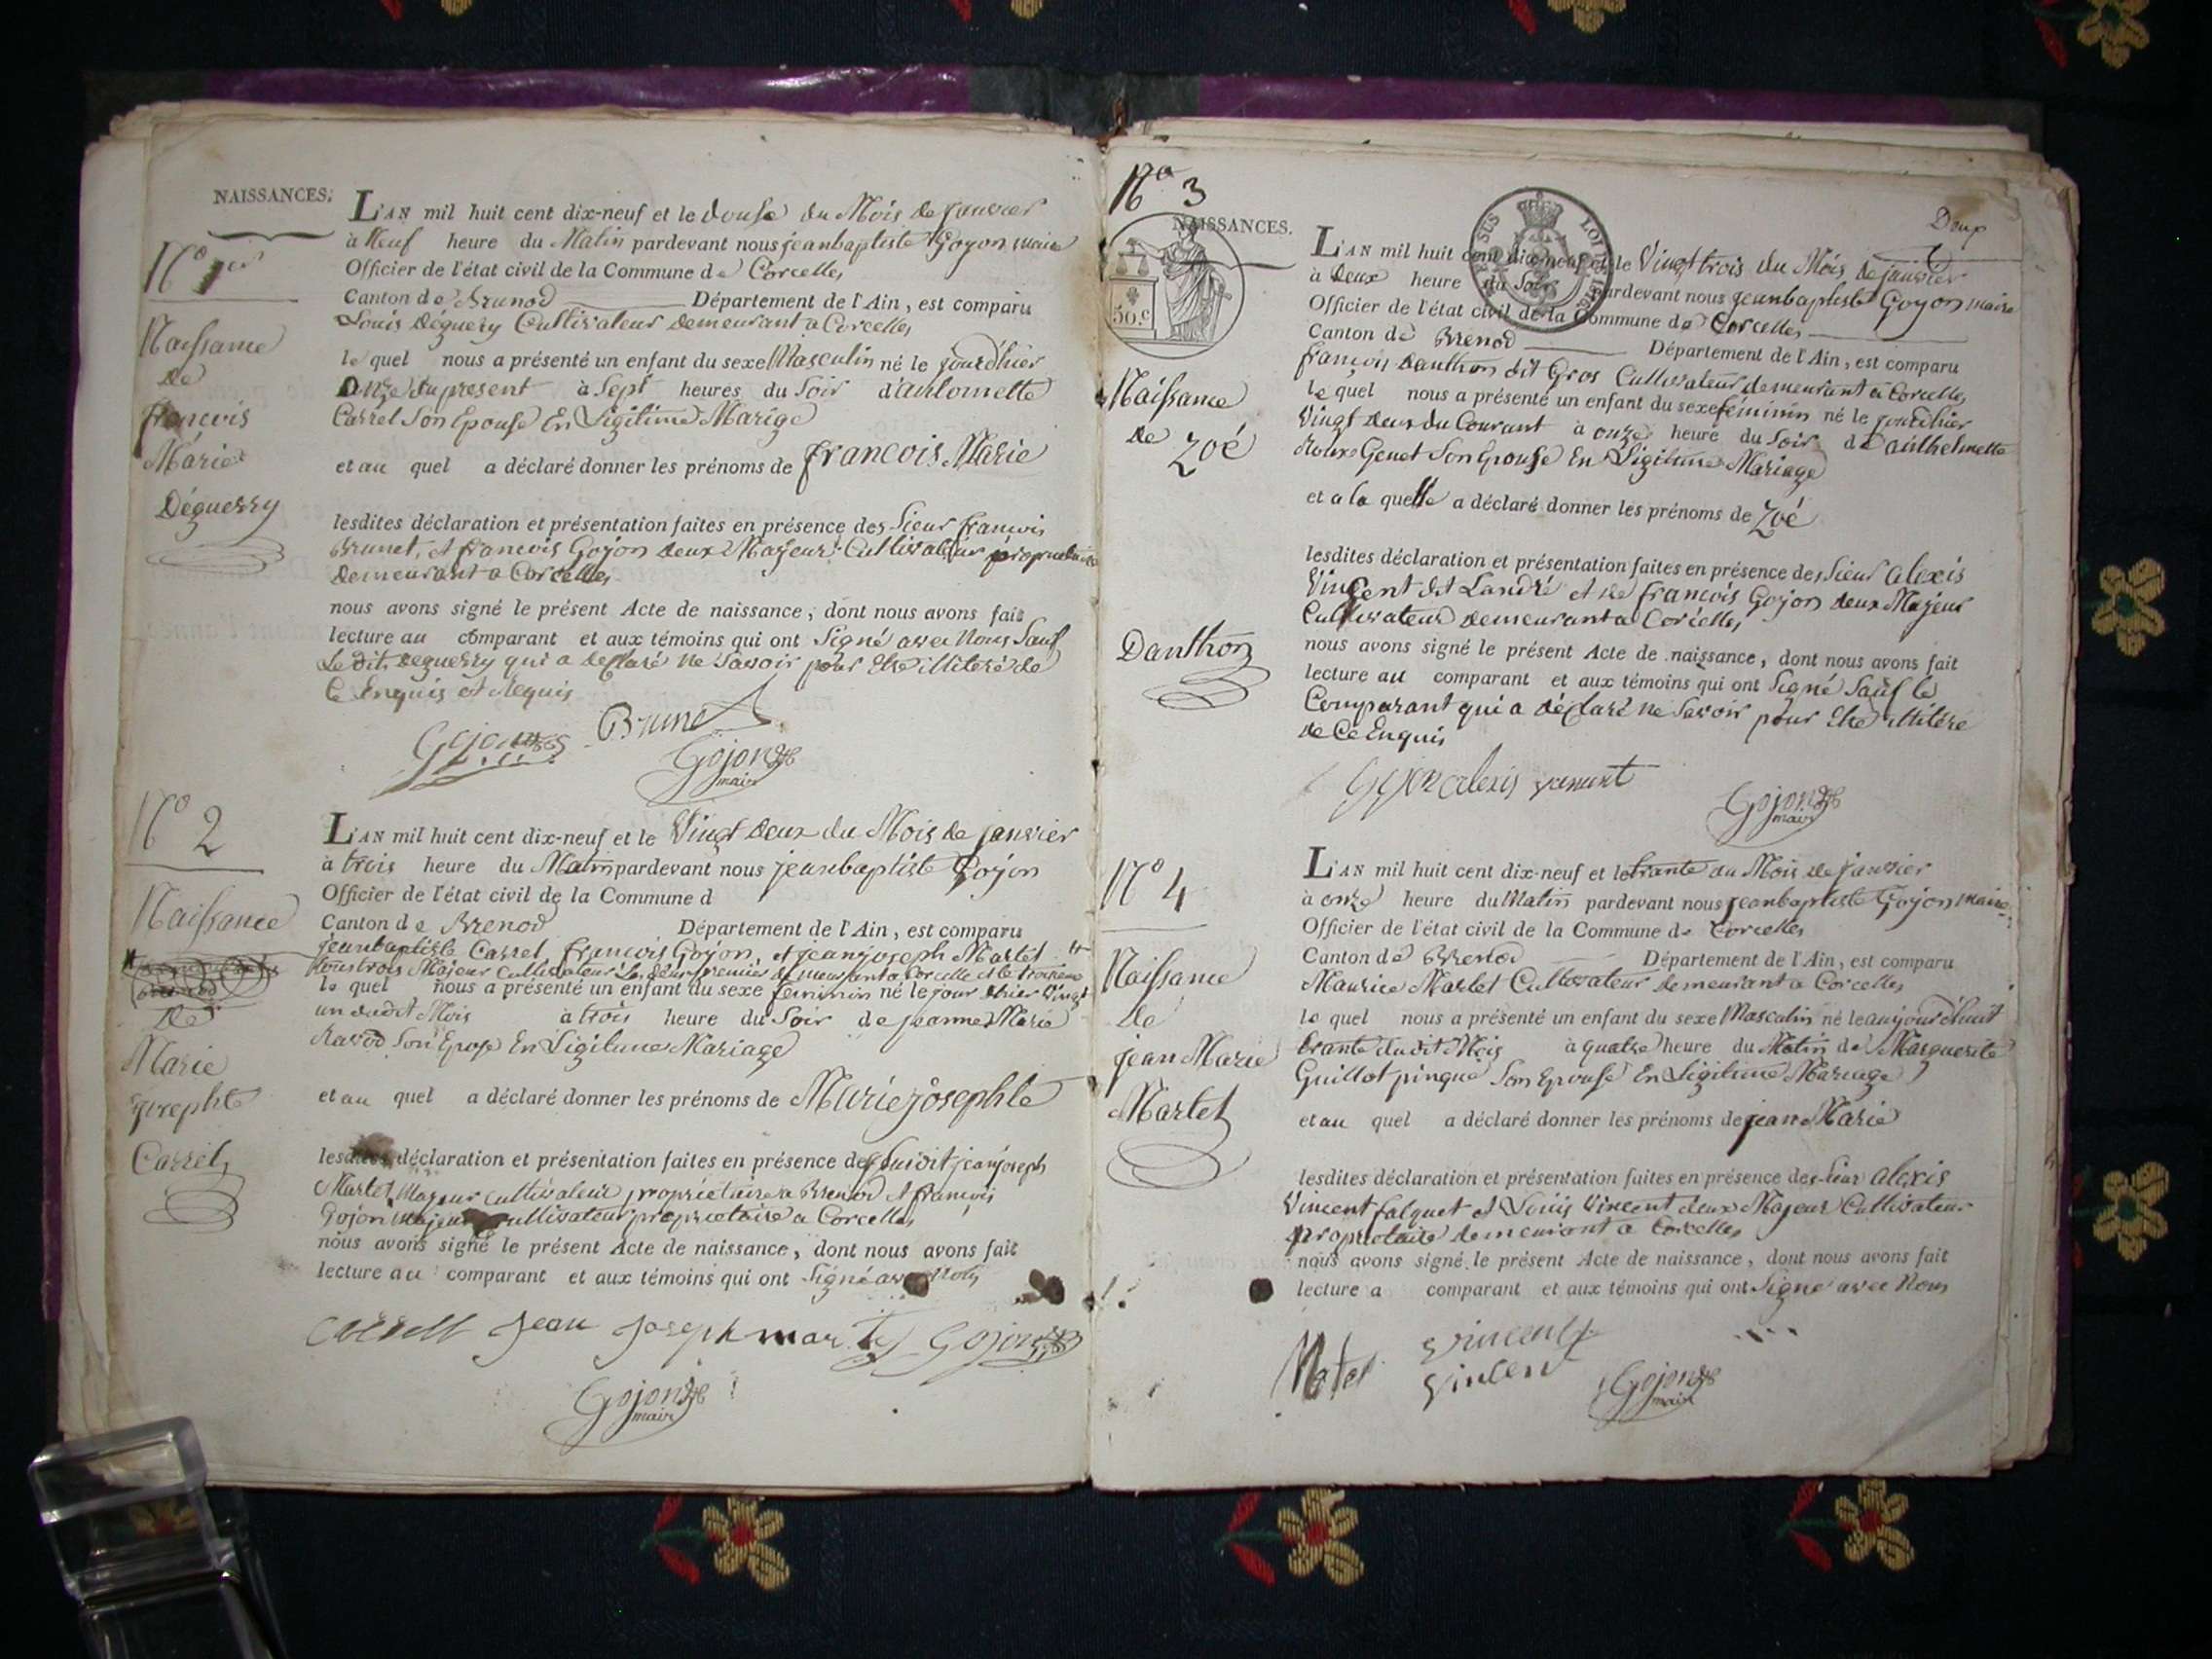 NAISSANCES.
N° 1er
Naissance
de
françois
Marie
Déguerry
L'AN mil huit cent dix-neuf et le douse du Mois de janvier
à Neuf heure du Matin pardevant nous jeanbaptiste Goyon maire
Officier de l'état civil de la Commune de Corcelles
Canton de Brenod Département de l'Ain, est comparu
Louis Déguery Cultivateur demeurant a Corcelles
le quel nous a présenté un enfant du sexe Masculin né le jourdhier
Onze du present à Sept heures du Soir d'antoinette
Carrel Son Epouse En Ligitime Marige
et au quel a déclaré donner les prénoms de francois Marie
lesdites déclaration et présentation faites en présence des Sieur francois
Brunet, et francois Gojon deux Majeur Cultivateur propriétaire
demeurant a Corcelles
nous avons signé le présent Acte de naissance, dont nous avons fait
lecture au comparant et aux témoins qui ont Signé avec Nous Sauf
Le dit deguerry qui a déclaré ne Savoir pour Etre illiteré de
Ce Enquis et Requis
Gojon Brunet
Gojon
maire
N° 2
Naissance
de
Marie
josephte
Carrel
L'AN mil huit cent dix-neuf et le Vingt deux du Mois de janvier
à trois heure du Matin pardevant nous jeanbaptiste Gojon
Officier de l'état civil de la Commune d
Canton de Brenod Département de l'Ain, est comparu
jeanbaptiste Carrel, francois Gojon, et jeanjoseph Martel
tous trois Majeur Cultivateur Les deux premier demeurant a Corcelle et le troisieme
le quel nous a présenté un enfant du sexe feminin né le jour dhier Vingt
un dudit Mois à trois heure du Soir de jeanne Marie
Ravod Son Epose En Ligitime Mariage
et au quel a déclaré donner les prénoms de Marie josephte
lesdites déclaration et présentation faites en présence des Susdit jeanjoseph
Martel Majeur cultivateur propriétaire a Brenod et françois
Gojon Majeur cultivateur propriétaire a Corcelles
nous avons signé le présent Acte de naissance, dont nous avons fait
lecture au comparant et aux témoins qui ont Signé avec Nous
Carrell Jean Joseph martel Gojon
Gojon
maire
Deux
N° 3
NAISSANCES.
50.c
Naissance
de Zoé
Danthon
L'AN mil huit cent dix-neuf et le Vingt trois du Mois de janvier
à deux heure du Soir pardevant nous jeanbaptiste Goyon maire
Officier de l'état civil de la Commune de Corcelles
Canton de Brenod Département de l'Ain, est comparu
françois Danthon dit Gros Cultivateur demeurant a Corcelles
le quel nous a présenté un enfant du sexe féminin né le jourdhier
Vingt deux du Courant à onze heure du Soir de anthelmette
Genet Son Epouse En Ligitime Mariage
et a la quelle a déclaré donner les prénoms de Zoé
lesdites déclaration et présentation faites en présence des Sieur alexis
Vincent dit Landré et de francois Gojon deux Majeur
Cultivateur demeurant a Corcelles
nous avons signé le présent Acte de naissance, dont nous avons fait
lecture au comparant et aux témoins qui ont Signé Sauf le
Comparant qui a déclaré ne Savoir pour Etre illiteré
de Ce Enquis
Gojon alexis vincent
Gojon
maire
N° 4
Naissance
de
jean Marie
Martel
L'AN mil huit cent dix-neuf et le trante du Mois de janvier
à onze heure du Matin pardevant nous jeanbaptiste Gojon maire
Officier de l'état civil de la Commune de Corcelles
Canton de Brenod Département de l'Ain, est comparu
Maurice Martel Cultivateur demeurant a Corcelles
le quel nous a présenté un enfant du sexe Masculin né le aujourdhuit
trante dudit Mois à quatre heure du Matin de Marguerite
Guillot pingue Son Epouse En Ligitime Mariage
et au quel a déclaré donner les prénoms de jean Marie
lesdites déclaration et présentation faites en présence des Sieur alexis
Vincent falquet et Louis Vincent deux Majeur Cultivateur
propriétaire demeurant a Corcelles
nous avons signé le présent Acte de naissance, dont nous avons fait
lecture a comparant et aux témoins qui ont Signé avec Nous
Matel Vincent
Vincent
Gojon
maire